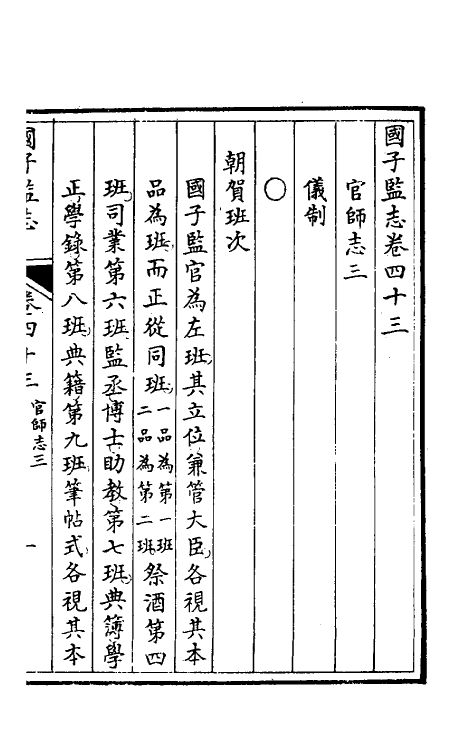 國子監志卷四十三
官師志三
儀制
〇
朝賀班次
國子監官為左班其立位兼管大臣各視其本
品為班而正從同班一品為第一班二品為第二班祭酒第四
班司業第六班監丞博士助教第七班典簿學
正學錄第八班典籍第九班筆帖式各視其本
國子監志
卷四十三
官師志三
一